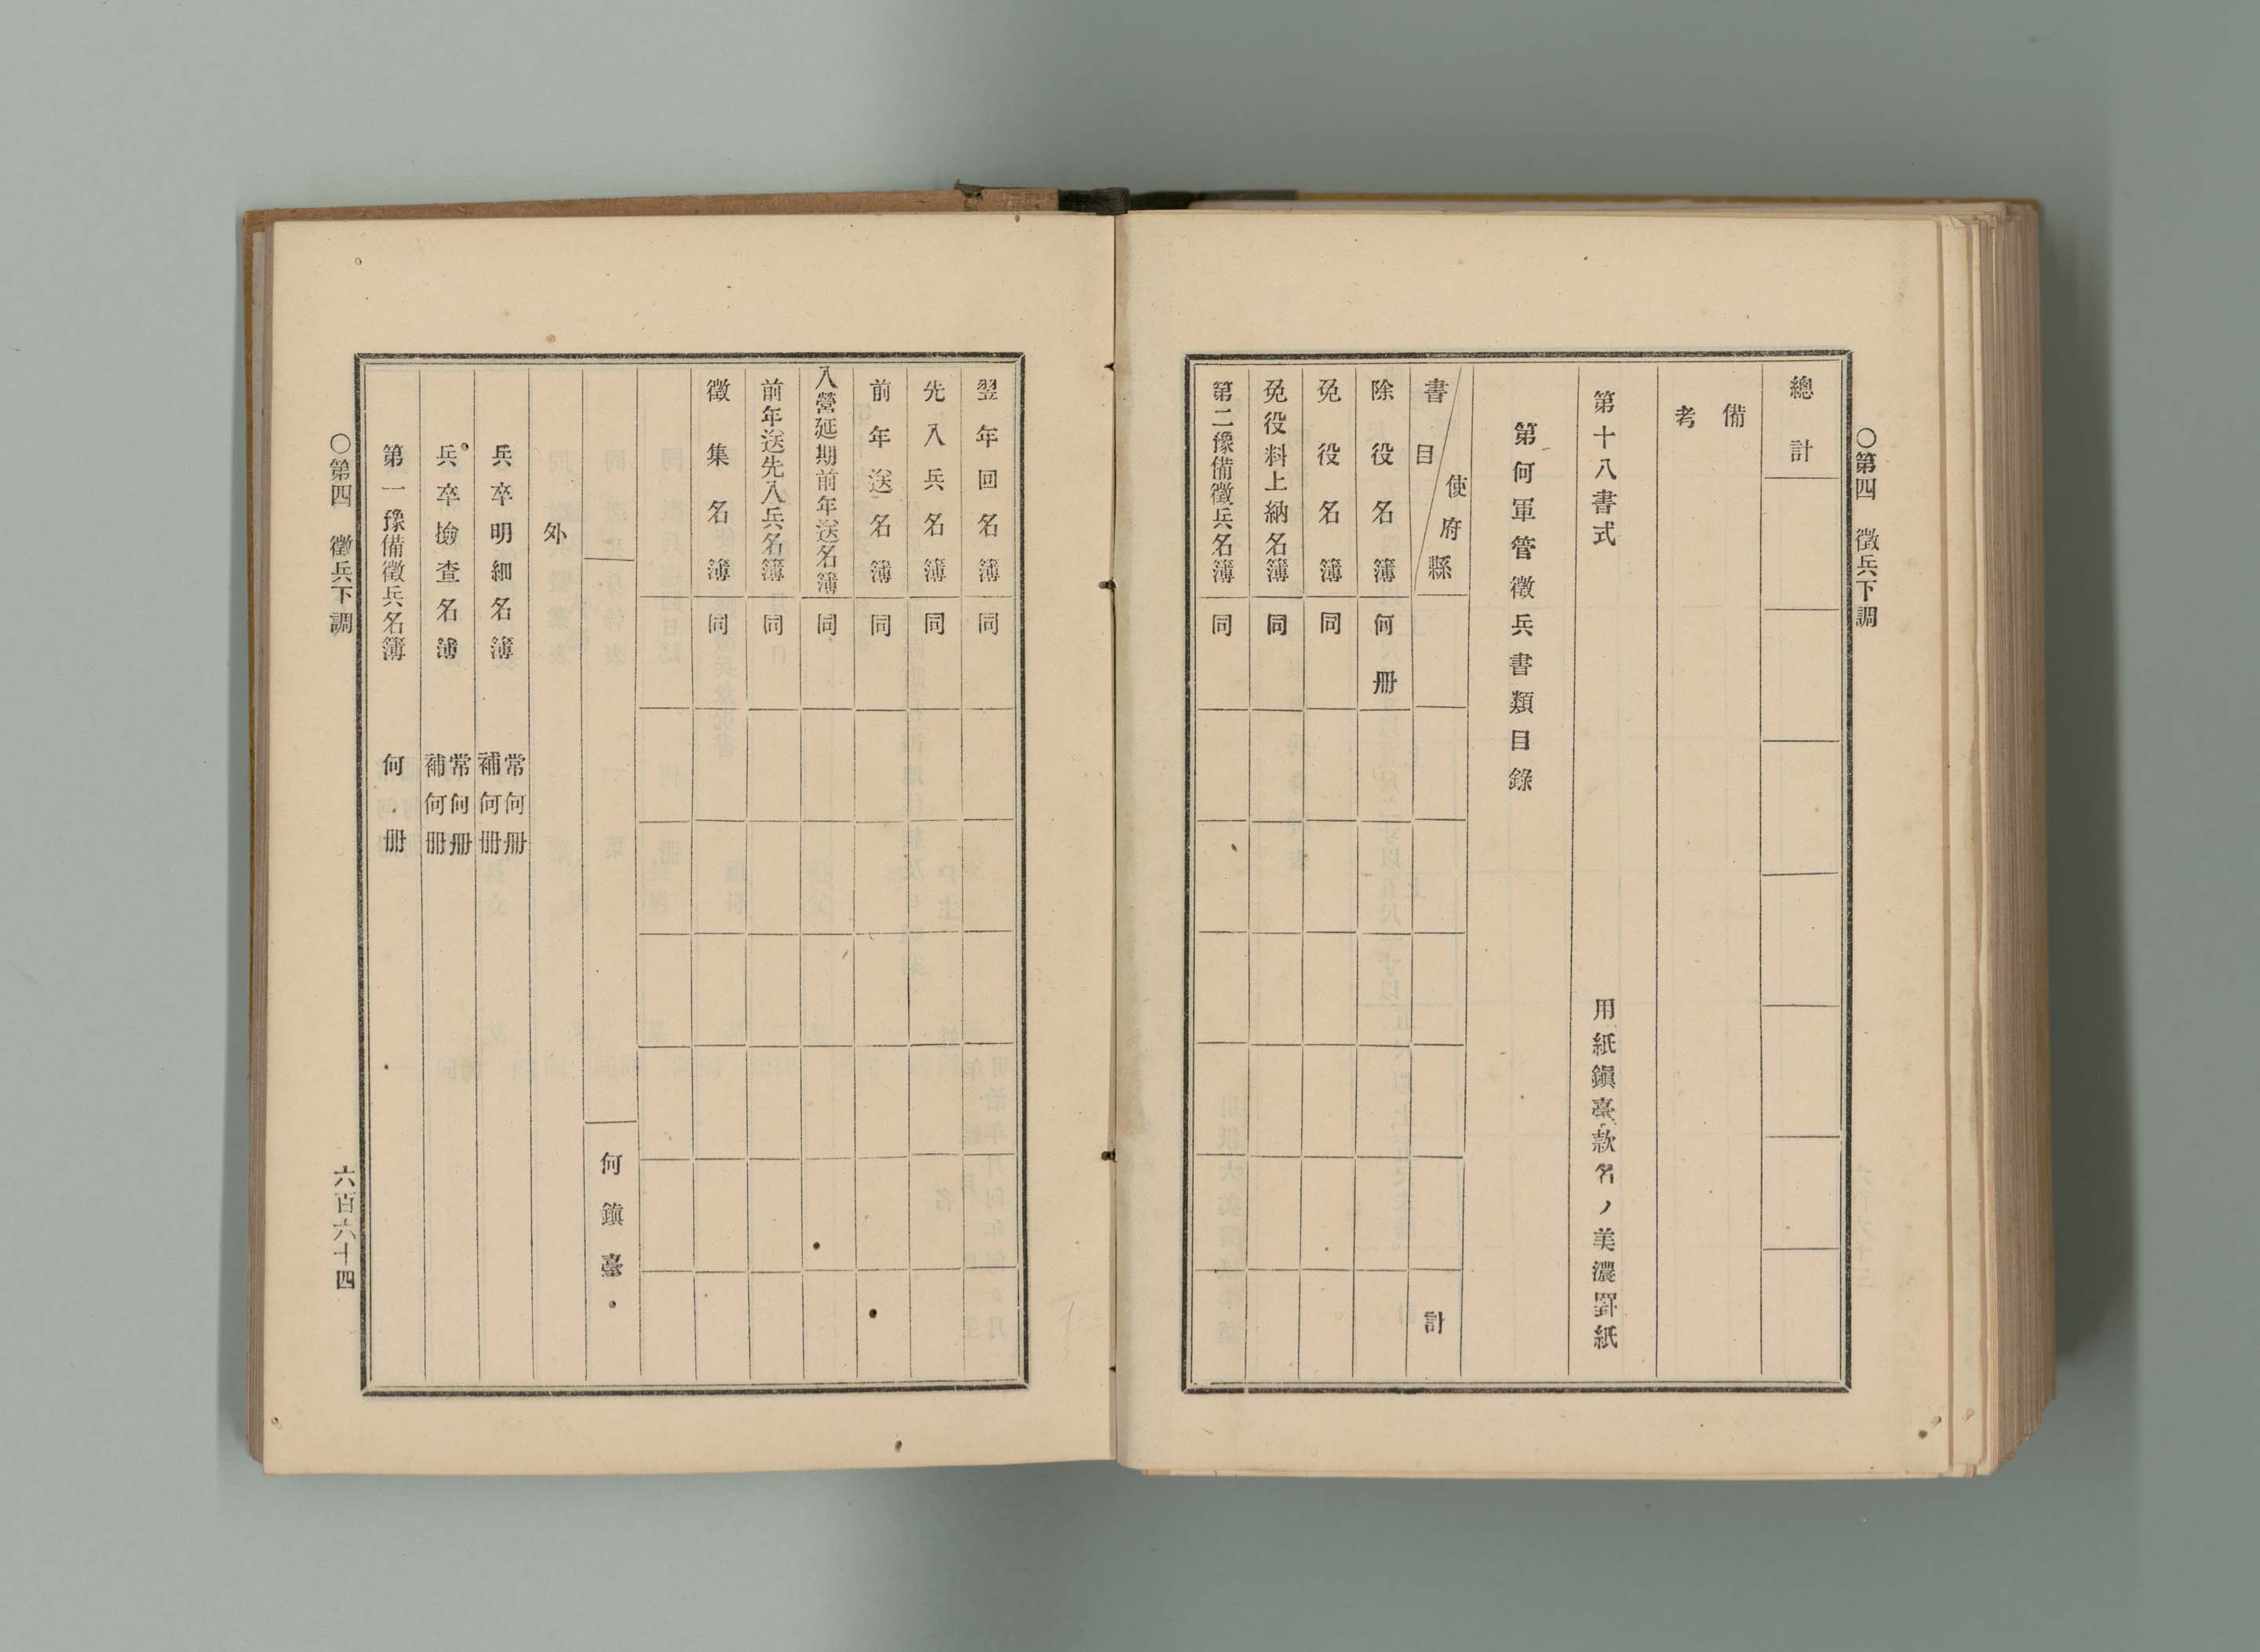 〇第四　徵兵下調
總計
備考
第十八書式　用紙鎭臺款名ノ美濃罫紙
第何軍管徵兵書類目錄
使府縣
書目
計
除役名簿　何册
免役名簿　同
免役料上納名簿　同
第二豫備徵兵名簿　同
翌年回名簿　同
先入兵名簿　同
前年送名簿　同
入營延期前年送名簿　同
前年送先入兵名簿　同
徵集名簿　同
何鎭臺
外
兵卒明細名簿　常何册　補何册
兵卒撿查名簿　常何册　補何册
第一豫備徵兵名簿　何册
〇第四　徵兵下調
六百六十四